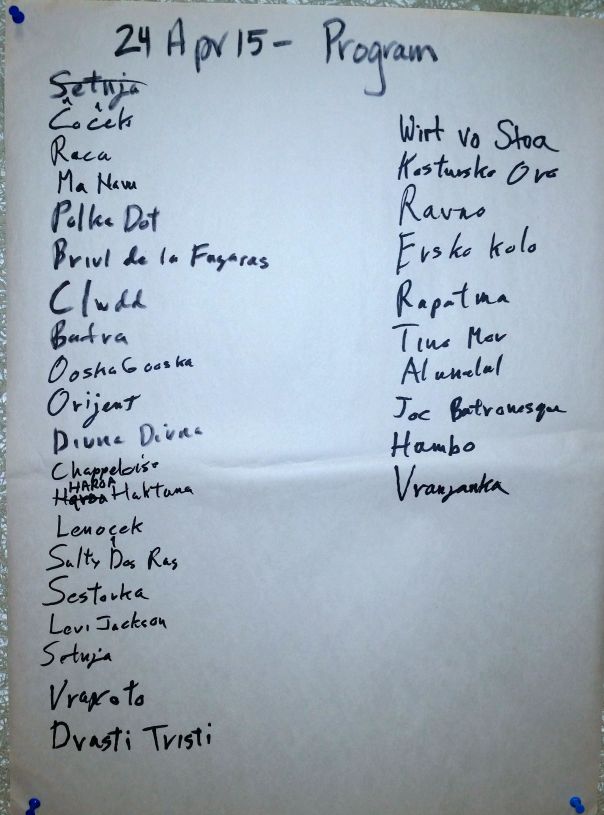 24 Apr 15 - Program
Setnja
Čoček
Raca
Ma Nam
Polka Dot
Briul de la Fagaras
Clwdd
Batra
Oosha Gooska
Orijent
Divna Divna
Chappeloise
HAROA Haktana
Lenoçek
Salty Dog Rag
Sestorka
Levi Jackson
Setnja
Vrapoto
Drasti Tristi
Wirt vo Stoa
Kostursko Oro
Ravno
Ersko Kolo
Rapatma
Tino Mor
Alunelul
Joc Batranesque
Hambo
Vranjanka